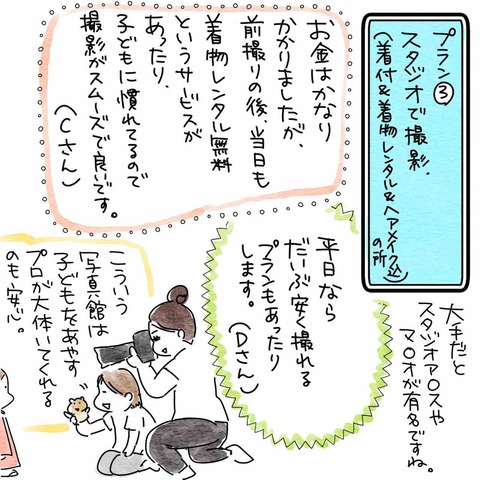 プラン③
スタジオで撮影.
（着付&着物レンタル&ヘアメイク込
の所）
大手だと
スタジオア〇スや
マ〇オが有名ですね。
お金はかなり
かかりましたが、
前撮りの後、当日も
着物レンタル無料
というサービスが
あったり、
子どもに慣れてるので
撮影がスムーズで良いです。
（Cさん）
平日なら
だいぶ安く撮れる
プランもあったり
します。
（Dさん）
こういう
写真館は
子どもをあやす
プロが大体いてくれる
のも安心。